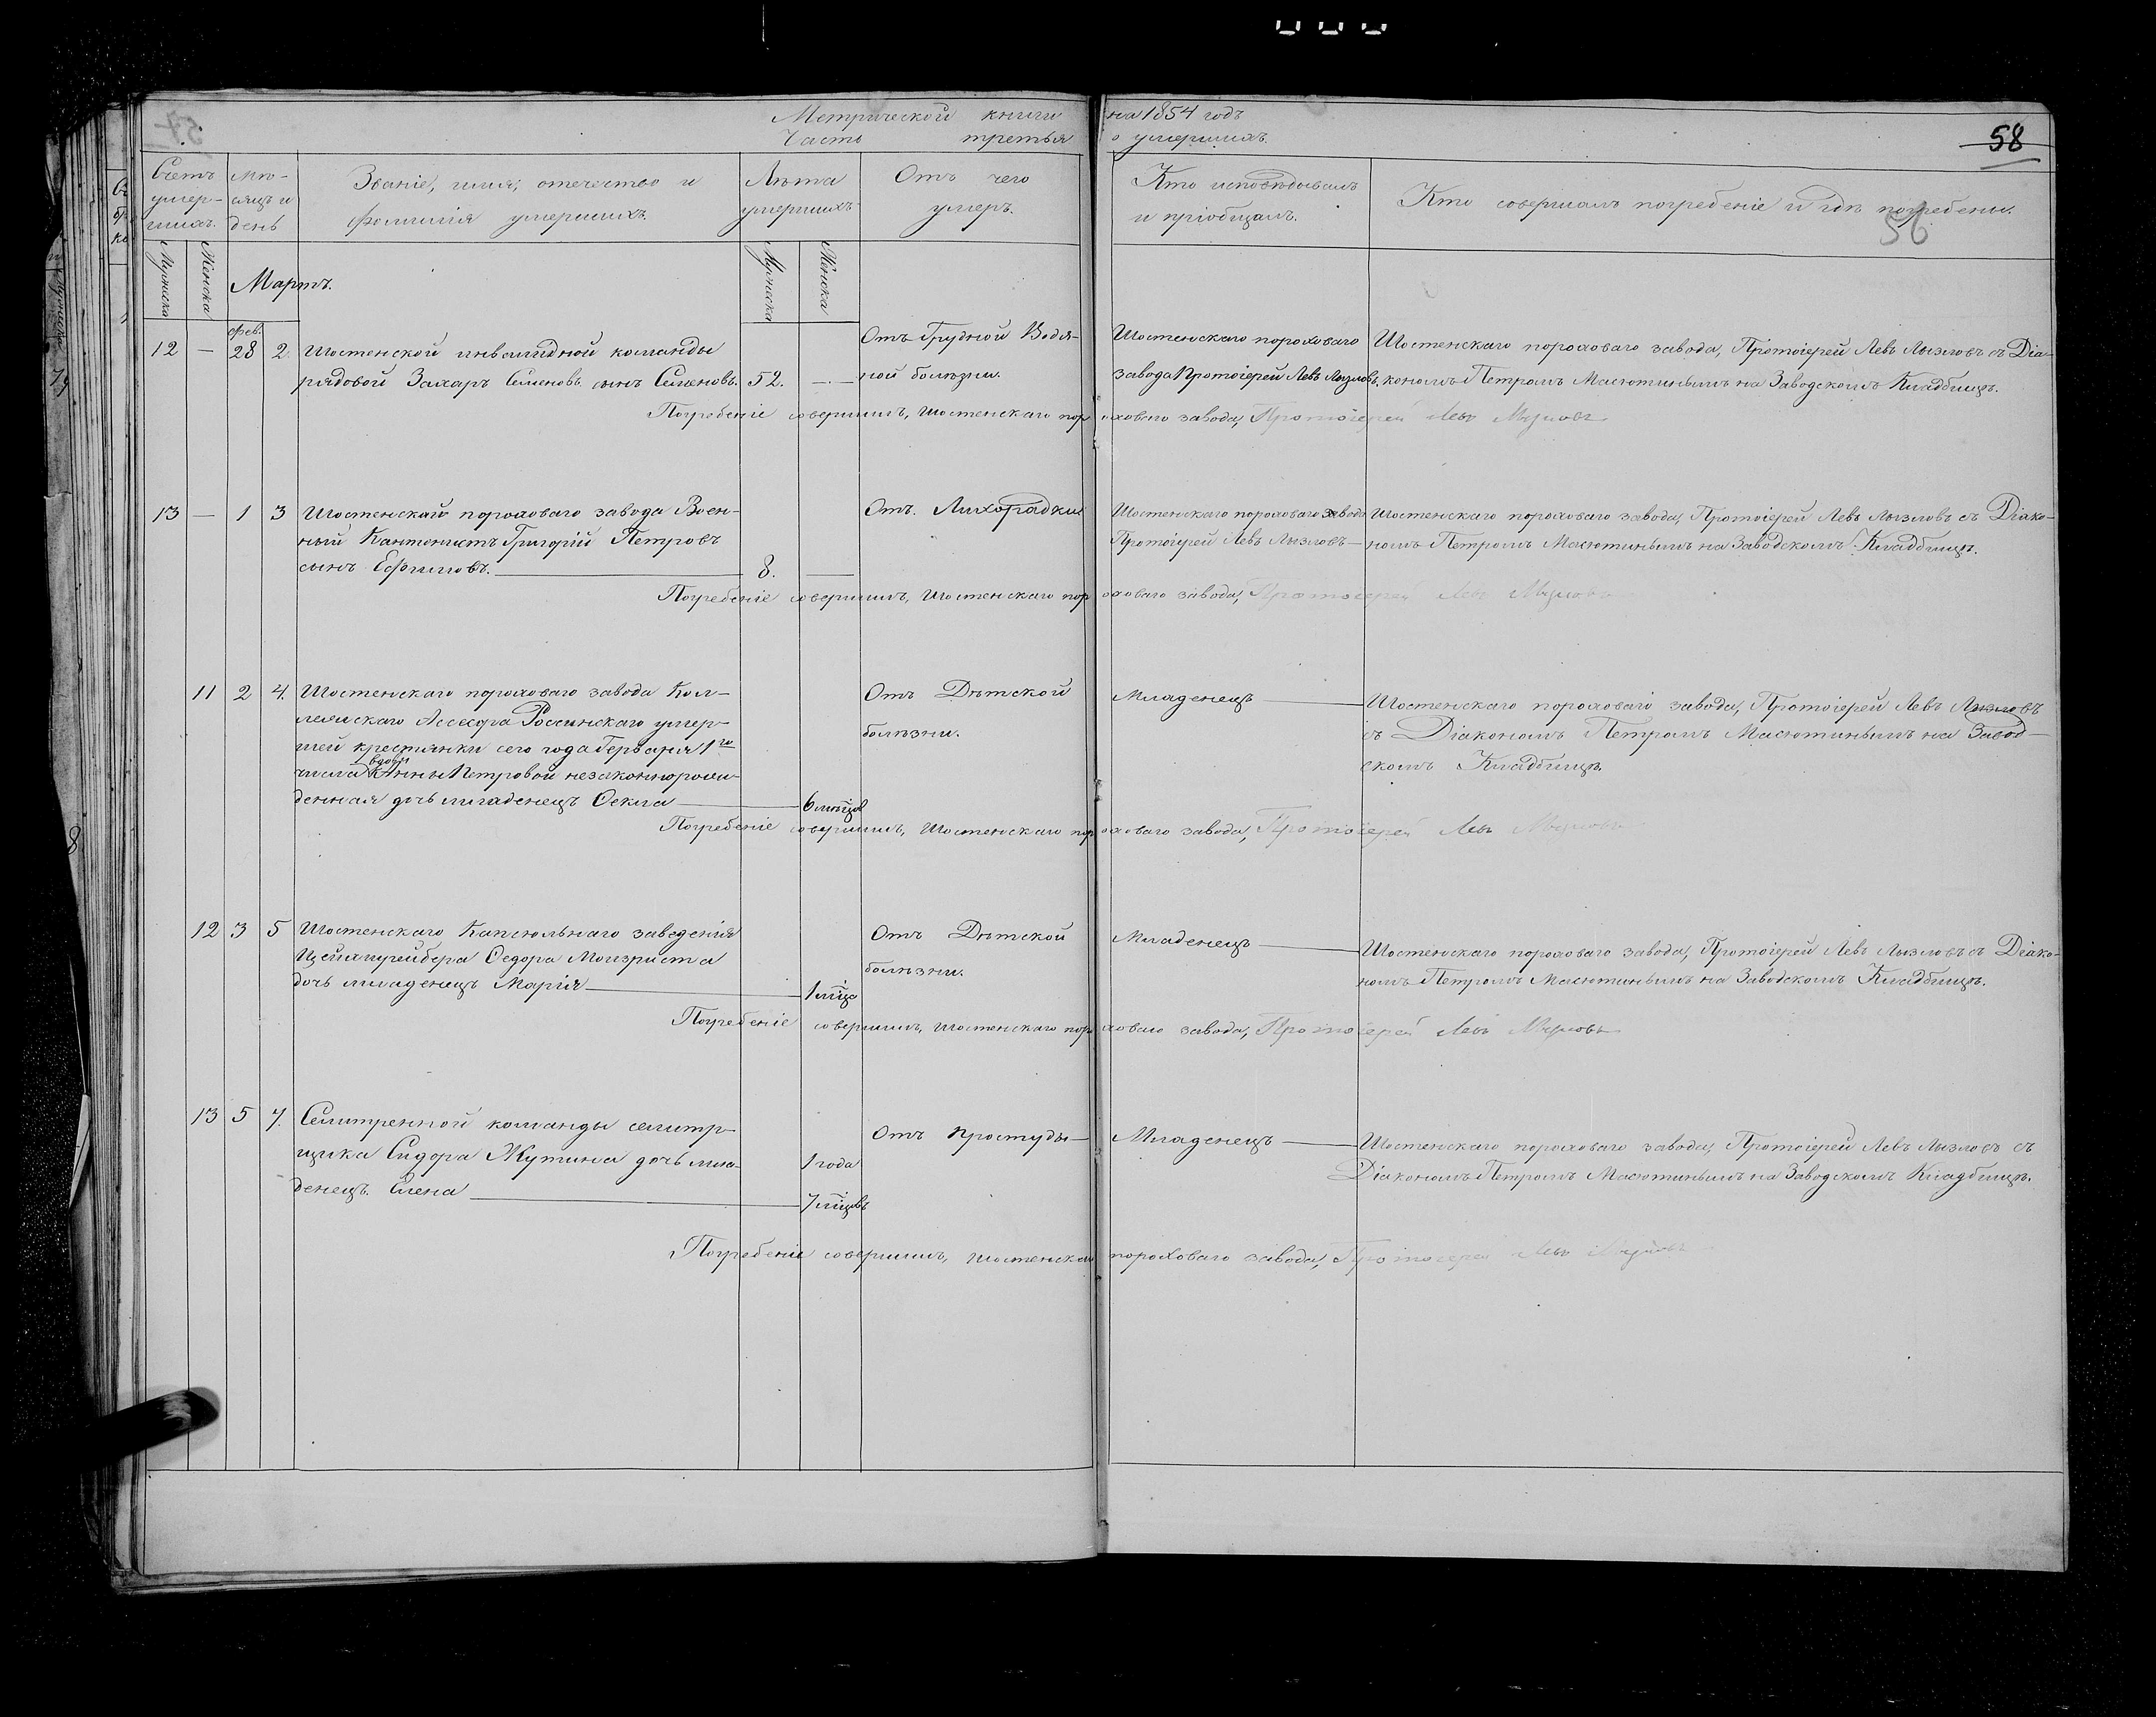 Метрической книги на 1854 годъ
Часть третья о умершихъ.
58
56
Счетъ умер-шихъ.
Мѣ-сяцъ и день
Званіе, имя, отечество и фамилія умершихъ.
Лѣта умершихъ
Отъ чего умеръ.
Кто исповѣдывалъ и пріобщалъ.
Кто совершалъ погребеніе и гдѣ погребены.
Мужеска
Женска
Мартъ.
Мужеска
Женска
12 — фев. 28 2.
Шостенской инвалидной команды
рядовой Захаръ Семеновъ сынъ Семеновъ. 52. —
Отъ Грудной Водя-
ной болѣзни.
Шостенскаго пороховаго
завода Протоіерей Левъ Лызловъ.
Шостенскаго пороховаго завода, Протоіерей Левъ Лызловъ съ Діа-
кономъ Петромъ Масютинымъ на Заводскомъ Кладбищѣ.
Погребеніе совершилъ, Шостенскаго пороховаго завода, Протоіерей Левъ Лызловъ
13 — 1 3
Шостенскаго пороховаго завода Воен-
ный Кантонистъ Григорій Петровъ
сынъ Ефимовъ. 8. —
Отъ Лихорадки
Шостенскаго пороховаго завода
Протоіерей Левъ Лызловъ —
Шостенскаго пороховаго завода, Протоіерей Левъ Лызловъ съ Діако-
номъ Петромъ Масютинымъ на Заводскомъ Кладбищѣ.
Погребеніе совершилъ, Шостенскаго пороховаго завода, Протоіерей Левъ Лызловъ
11 2 4.
Шостенскаго пороховаго завода Кол-
лежскаго Асесора Россинскаго умер-
шей крестьянки сего года Генваря 1го
числа вдовы Анны Петровой незаконнорож-
денная дочь младенецъ Фекла 6 мѣсцов
Отъ Дѣтской
болѣзни.
Младенецъ —
Шостенскаго пороховаго завода, Протоіерей Левъ Лызловъ
съ Діакономъ Петромъ Масютинымъ на Завод-
скомъ Кладбищѣ.
Погребеніе совершилъ, Шостенскаго пороховаго завода, Протоіерей Левъ Лызловъ
12 3 5
Шостенскаго Капсюльнаго заведенія
Цейхшрейбера Федора
дочь младенецъ Марія 1 мсца
Отъ Дѣтской
болѣзни.
Младенецъ —
Шостенскаго пороховаго завода, Протоіерей Левъ Лызловъ съ Діако-
номъ Петромъ Масютинымъ на Заводскомъ Кладбищѣ.
Погребеніе совершилъ, Шостенскаго пороховаго завода, Протоіерей Левъ Лызловъ
13 5 7.
Селитренной команды селитр-
щика Сидора Жутина дочь мла-
денецъ Елена 1 года
7 мсцовъ
Отъ простуды —
Младенецъ —
Шостенскаго пороховаго завода, Протоіерей Левъ Лызловъ съ
Діакономъ Петромъ Масютинымъ на Заводскомъ Кладбищѣ.
Погребеніе совершилъ, Шостенскаго пороховаго завода, Протоіерей Левъ Лызловъ